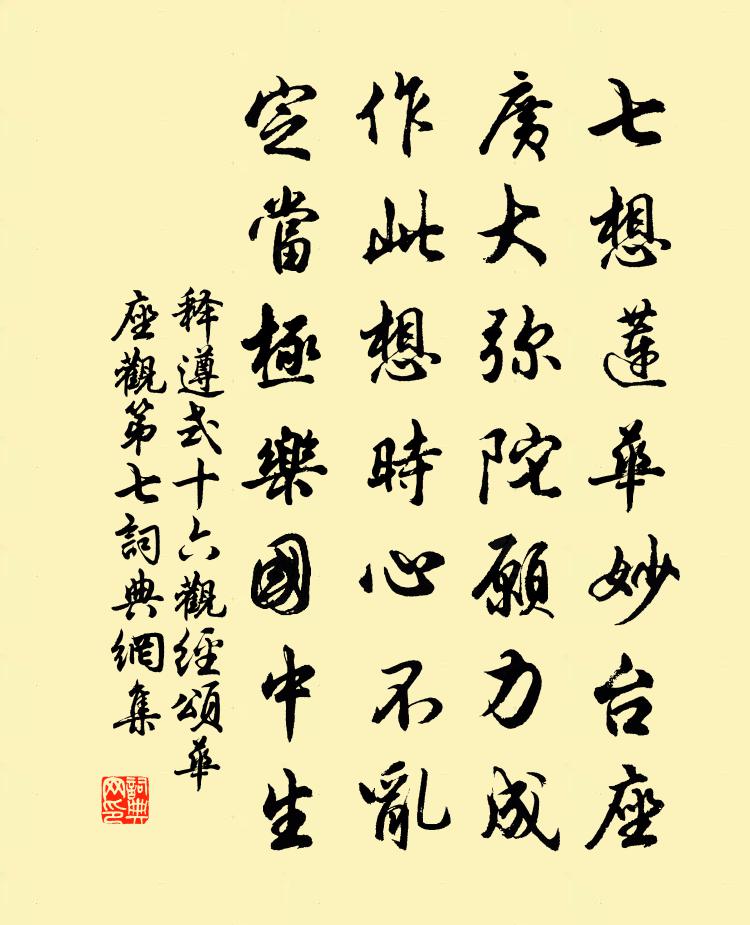 七想蓮華妙台座
廣大弥陀願力成
作此想時心不亂
定當極樂國中生
释遵式十六觀經頌華
座觀第七詞典網集
詞典
网印